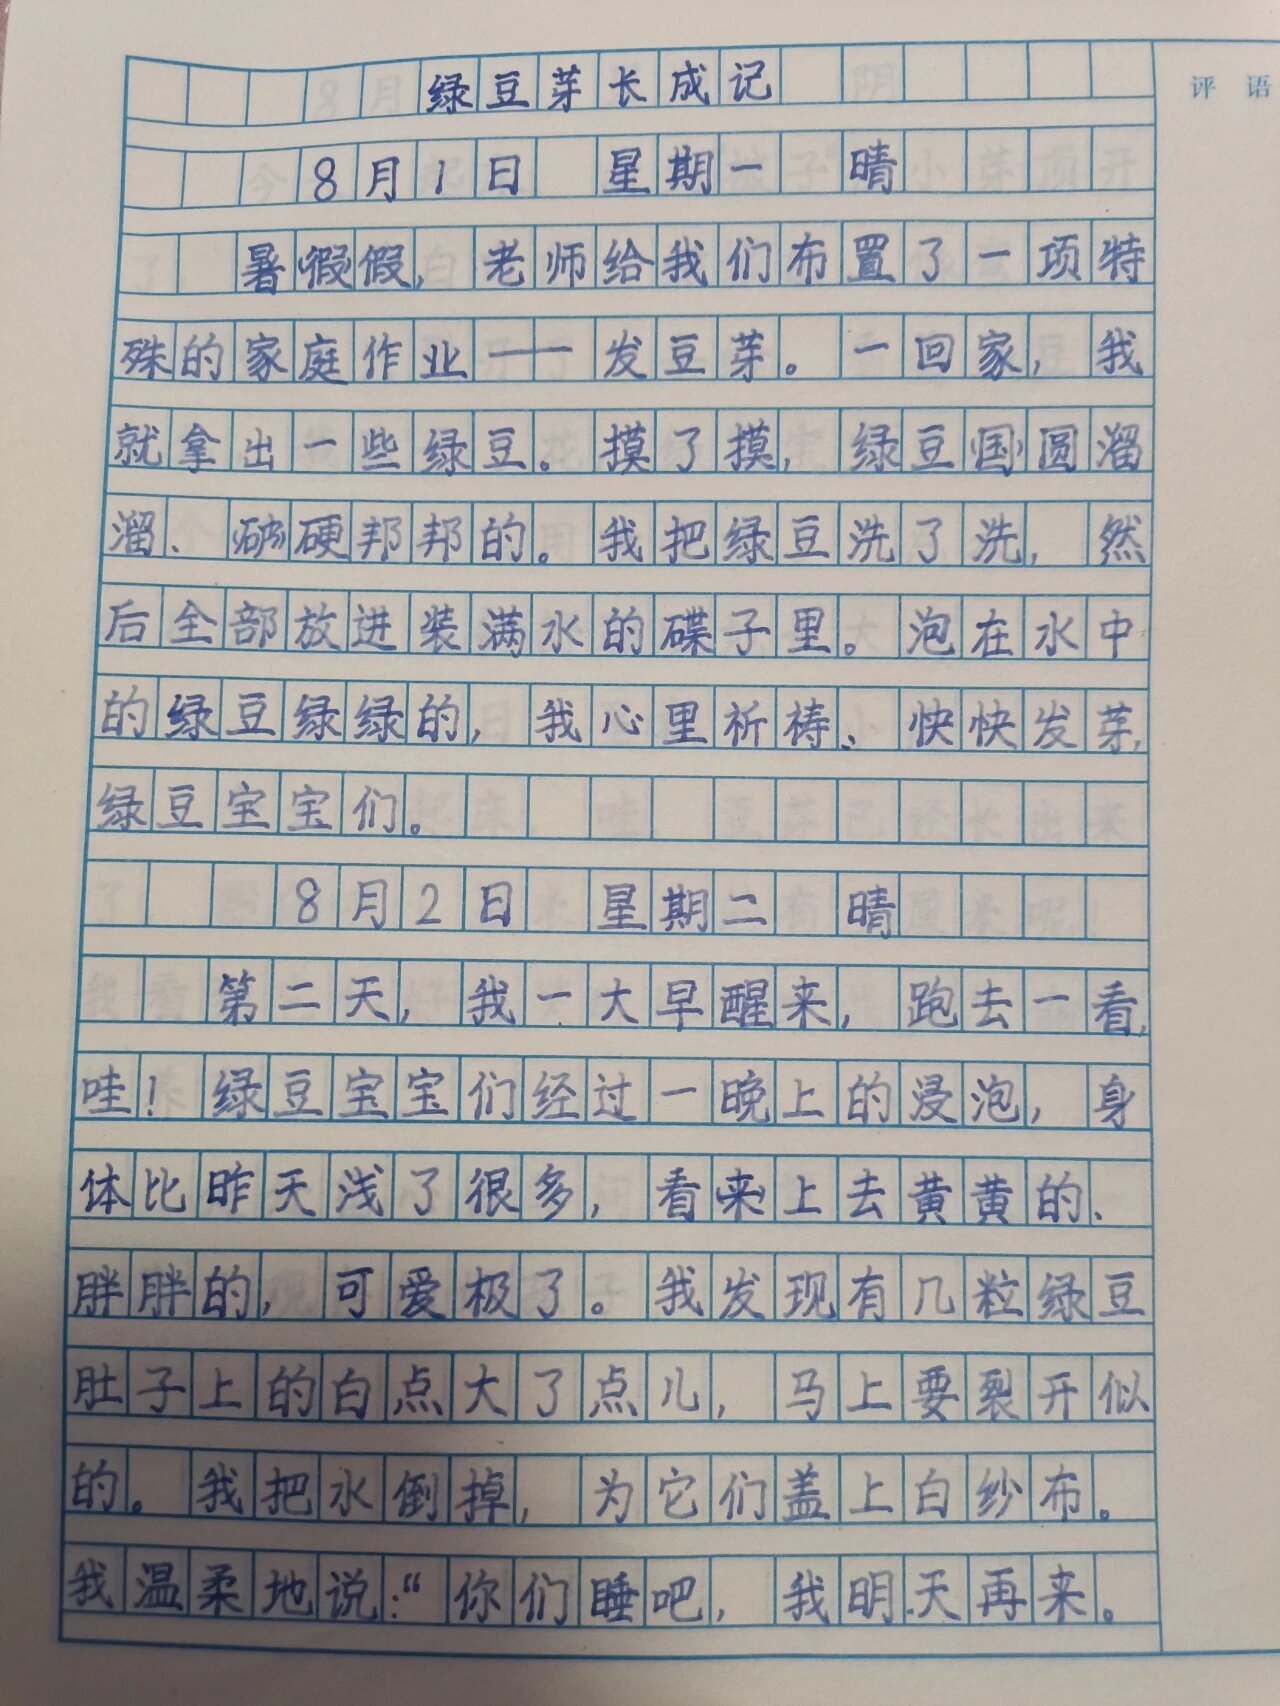 绿豆芽长成记
评语
8月1日 星期一 晴
暑假假,老师给我们布置了一项特
殊的家庭作业——发豆芽。一回家,我
就拿出一些绿豆。摸了摸,绿豆国圆溜
溜、硬邦邦的。我把绿豆洗了洗,然
后全部放进装满水的碟子里。泡在水中
的绿豆绿绿的,我心里祈祷、快快发芽,
绿豆宝宝们。
8月2日 星期二 晴
第二天,我一大早醒来,跑去一看,
哇!绿豆宝宝们经过一晚上的浸泡,身
体比昨天浅了很多,看来上去黄黄的、
胖胖的,可爱极了。我发现有几粒绿豆
肚子上的白点大了点儿,马上要裂开似
的。我把水倒掉,为它们盖上白纱布。
我温柔地说:“你们睡吧,我明天再来。